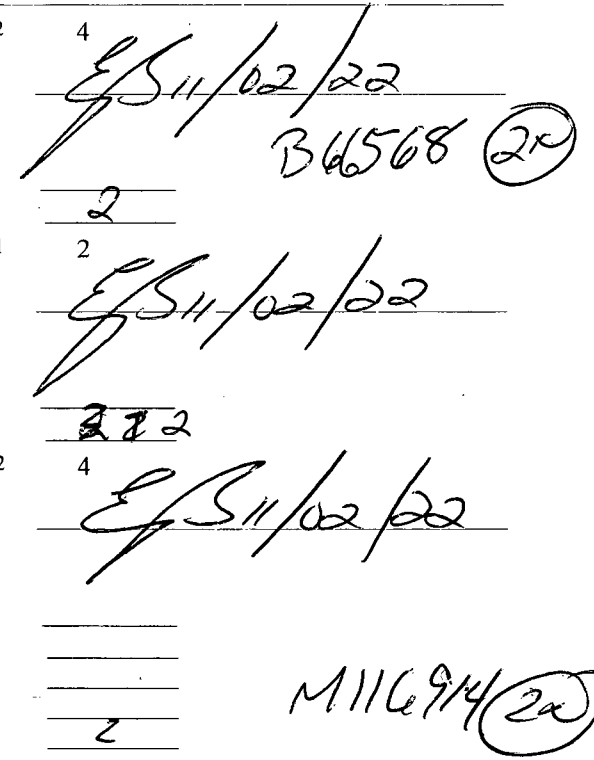 2 4
EJS 11/02/22
B66568 2x
2
2
EJS 11/02/22
2
2 4
EJS 11/02/22
M116914 2x
2